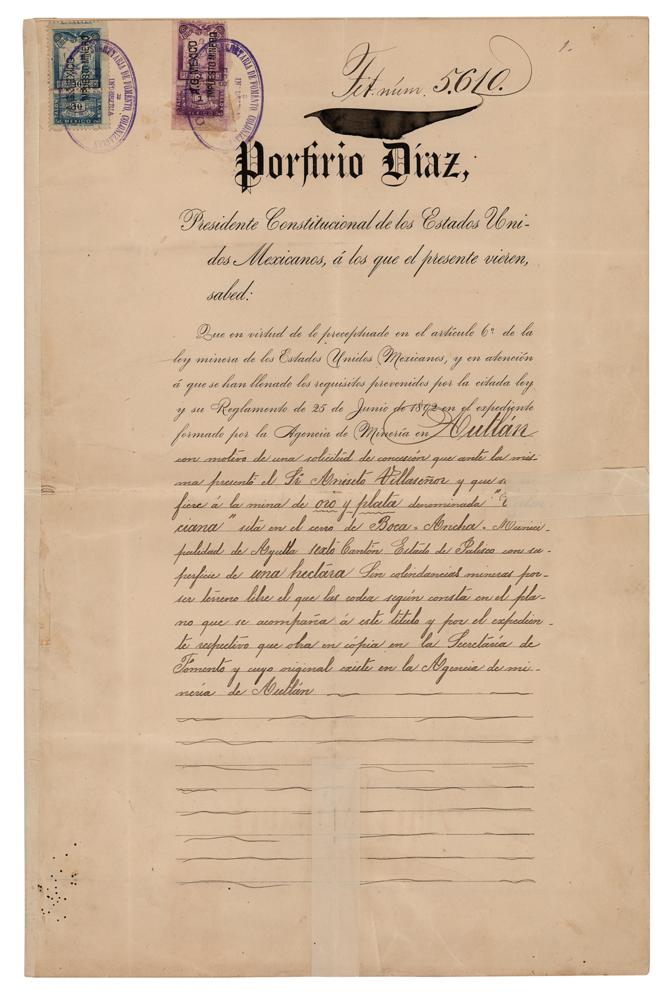 1.
Tit. núm. 5.610.
SECRETARIA DE FOMENTO, COLONIZACION
MEXICO
MEXICO
Porfirio Díaz,
Presidente Constitucional de los Estados Uni-
dos Mexicanos, á los que el presente vieren,
sabed:
Que en virtud de lo preceptuado en el artículo 6º de la
ley minera de los Estados Unidos Mexicanos, y en atención
á que se han llenado los requisitos prevenidos por la citada ley
y su Reglamento de 25 de Junio de 1892 en el expediente
formado por la Agencia de Minería en Autlán
con motivo de una solicitud de concesión que ante la mis-
ma presentó el Sr Aniseto Villaseñor y que
fiere á la mina de oro y plata denominada "
ciana" sita en el cerro de Boca-Ancha - Munici-
palidad de Ayutla sexto Cantón Estado de Jalisco con su-
perficie de una hectára Sin colindancias mineras por-
ser terreno libre el que las rodea según consta en el pla-
no que se acompaña á este título y por el expedien-
te respectivo que obra en cópia en la Secretaría de
Fomento y cuyo original existe en la Agencia de mi-
nería de Autlán